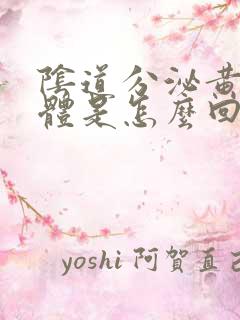 陰道分泌黃
體是怎麼回
yoshi 阿賀直己